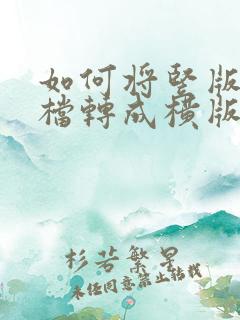 如何将竖版
檔轉成橫版
杉若繁星
未经同意禁止转载